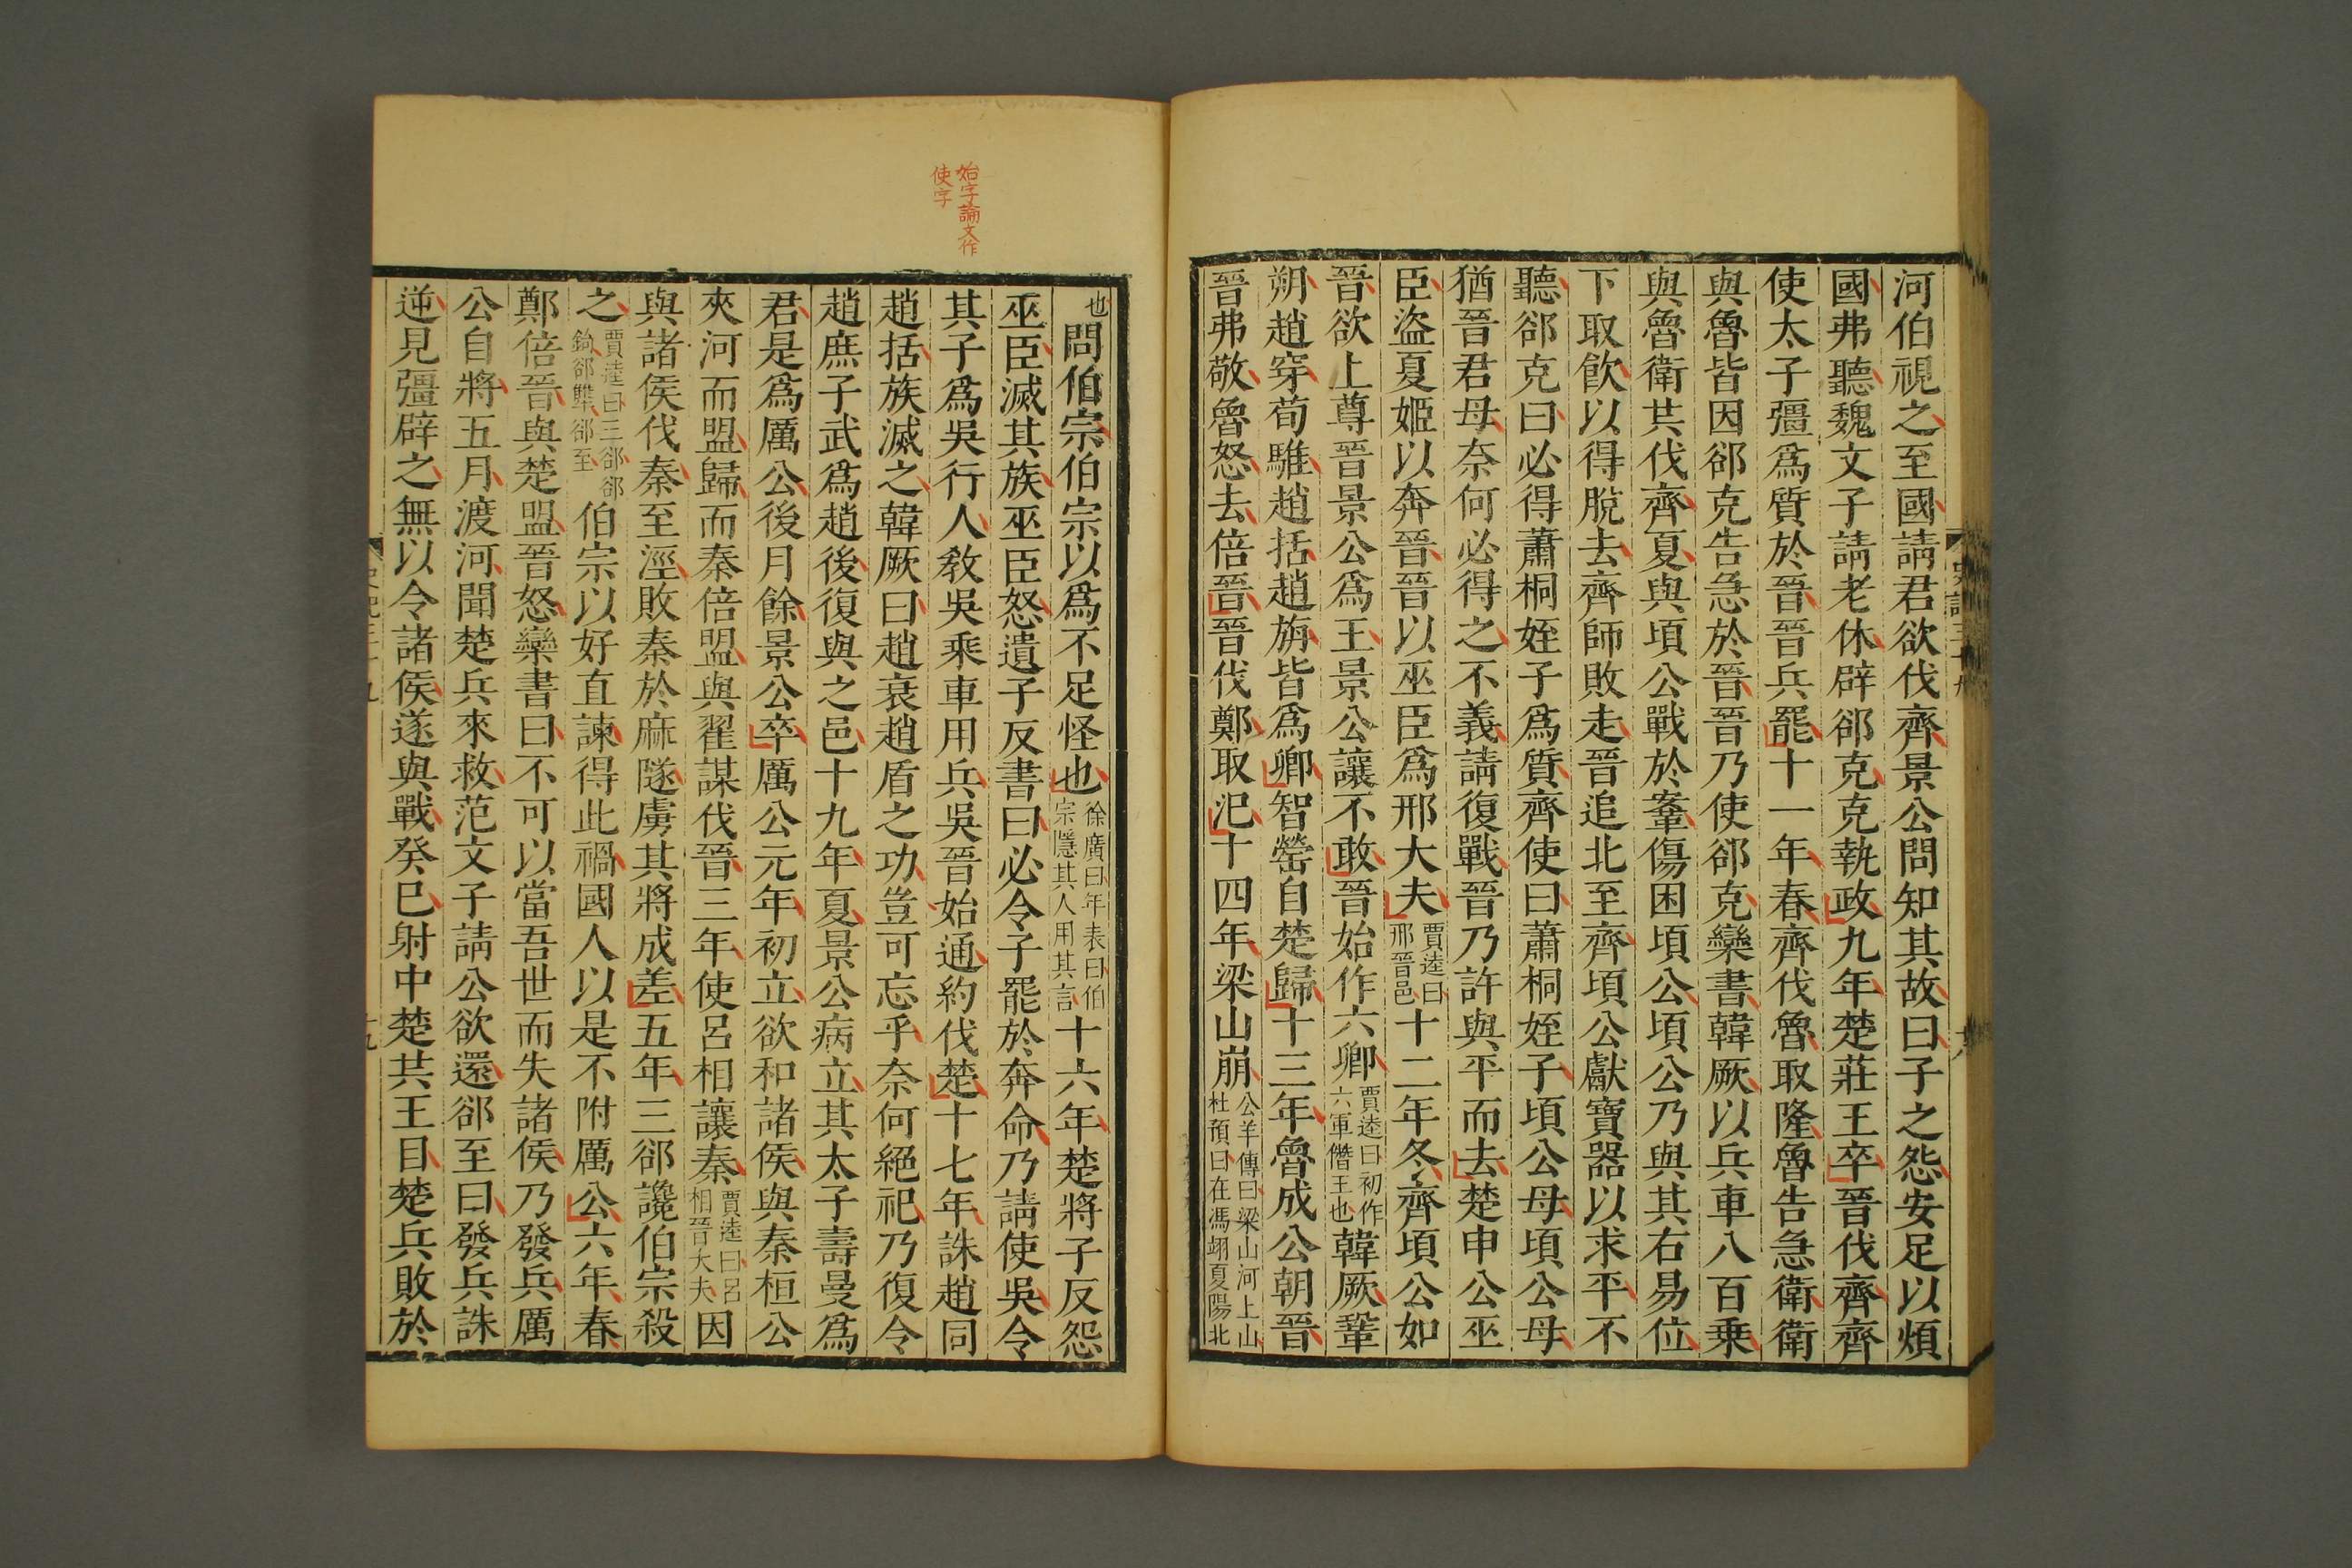 河伯視之至國請君欲伐齊景公問知其故曰子之怨安足以煩
國弗聽魏文子請老休辟郤克克執政九年楚莊王卒晉伐齊齊
使太子彊爲質於晉晉兵罷十一年春齊伐魯取隆魯告急衛衛
與魯皆因郤克告急於晉晉乃使郤克欒書韓厥以兵車八百乘
與魯衛共伐齊夏與頃公戰於鞌傷困頃公頃公乃與其右易位
下取飲以得脫去齊師敗走晉追北至齊頃公獻寶器以求平不
聽郤克曰必得蕭桐姪子爲質齊使曰蕭桐姪子頃公母頃公母
猶晉君母奈何必得之不義請復戰晉乃許與平而去楚申公巫
臣盜夏姬以奔晉晉以巫臣爲邢大夫賈逵曰邢晉邑十二年冬齊頃公如
晉欲上尊晉景公爲王景公讓不敢晉始作六卿賈逵曰初作六軍僭王也韓厥鞏
朔趙穿荀騅趙括趙旃皆爲卿智罃自楚歸十三年魯成公朝晉
晉弗敬魯怒去倍晉晉伐鄭取氾十四年梁山崩公羊傳曰梁山河上山杜預曰在馮翊夏陽北
史記三十九
十八
始字論文作
使字
也問伯宗伯宗以爲不足怪也徐廣曰年表曰伯宗隱其人用其言十六年楚將子反怨
巫臣滅其族巫臣怒遺子反書曰必令子罷於奔命乃請使吳令
其子爲吳行人敎吳乘車用兵吳晉始通約伐楚十七年誅趙同
趙括族滅之韓厥曰趙衰趙盾之功豈可忘乎奈何絕祀乃復令
趙庶子武爲趙後復與之邑十九年夏景公病立其太子壽曼爲
君是爲厲公後月餘景公卒厲公元年初立欲和諸侯與秦桓公
夾河而盟歸而秦倍盟與翟謀伐晉三年使呂相讓秦賈逵曰呂相晉大夫因
與諸侯伐秦至涇敗秦於麻隧虜其將成差五年三郤讒伯宗殺
之賈逵曰三郤郤錡郤犨郤至伯宗以好直諫得此禍國人以是不附厲公六年春
鄭倍晉與楚盟晉怒欒書曰不可以當吾世而失諸侯乃發兵厲
公自將五月渡河聞楚兵來救范文子請公欲還郤至曰發兵誅
逆見彊辟之無以令諸侯遂與戰癸巳射中楚共王目楚兵敗於